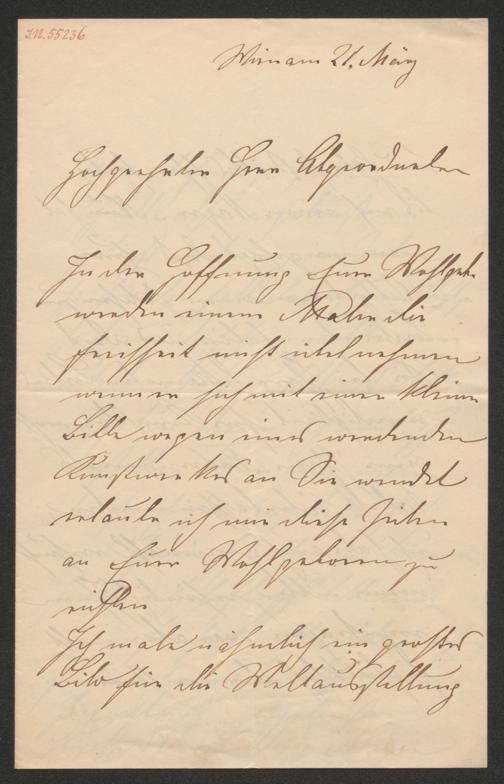 I.N. 55236
Wien am 21. März
Hochgeehrter Herr Abgeordneter
In der Hoffnung Euer Wohlgeb.
werden einem Maler die
Freiheit nicht übel nehmen
wenn er sich mit einer kleinen
Bitte wegen eines werdenden
Kunstwerkes an Sie wendet
erlaube ich mir diese Zeilen
an Euer Wohlgeboren zu
richten
Ich male nähmlich ein großes
Bild für die Weltausstellung